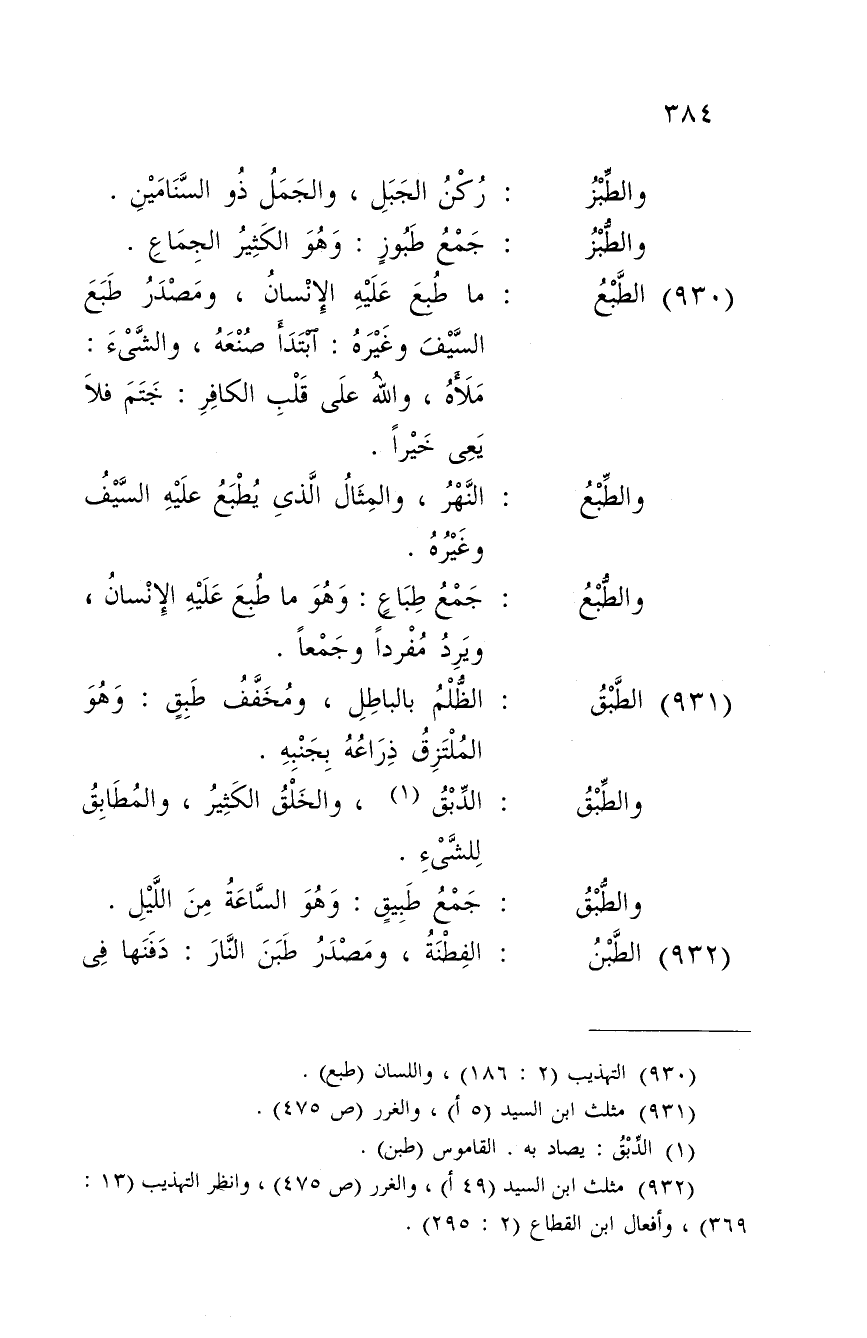 ٣٨٤
والطِّبْزُ : رُكْنُ الجَبَلِ ، والجَمَلُ ذُو السَّنَامَيْنِ .
والطُّبْزُ : جَمْعُ طَبُوزٍ : وَهُوَ الكَثِيرُ الجِمَاعِ .
(٩٣٠) الطَّبْعُ : ما طُبِعَ عَلَيْهِ الإِنْسانُ ، ومَصْدَرُ طَبَعَ
السَّيْفَ وغَيْرَهُ : ٱبْتَدَأَ صُنْعَهُ ، والشَّىْءَ :
مَلَأَهُ ، واللهُ علَى قَلْبِ الكافِرِ : خَتَمَ فلاَ
يَعِى خَيْراً .
والطِّبْعُ : النَّهْرُ ، والمِثَالُ الَّذىِ يُطْبَعُ علَيْهِ السَّيْفُ
وغَيْرُهُ .
والطُّبْعُ : جَمْعُ طِبَاعٍ : وَهُوَ ما طُبِعَ عَلَيْهِ الإِنْسانُ ،
ويَرِدُ مُفْرداً وجَمْعاً .
(٩٣١) الطَّبْقُ : الظُّلْمُ بالباطِلِ ، ومُخَفَّفُ طَبِقٍ : وَهُوَ
المُلْتَزِقُ ذِرَاعُهُ بِجَنْبِهِ .
والطِّبْقُ : الدِّبْقُ (١) ، والخَلْقُ الكَثِيرُ ، والمُطَابِقُ
لِلشَّىْءِ .
والطُّبْقُ : جَمْعُ طَبِيقٍ : وَهُوَ السَّاعَةُ مِنَ اللَّيْلِ .
(٩٣٢) الطَّبْنُ : الفِطْنَةُ ، ومَصْدَرُ طَبَنَ النَّارَ : دَفَنَها فِى
(٩٣٠) التهذيب (٢ : ١٨٦) ، واللسان (طبع) .
(٩٣١) مثلث ابن السيد (٥ أ) ، والغرر (ص ٤٧٥) .
(١) الدِّبْقُ : يصاد به . القاموس (طبن) .
(٩٣٢) مثلث ابن السيد (٤٩ أ) ، والغرر (ص ٤٧٥) ، وانظر التهذيب (١٣ :
٣٦٩) ، وأفعال ابن القطاع (٢ : ٢٩٥) .